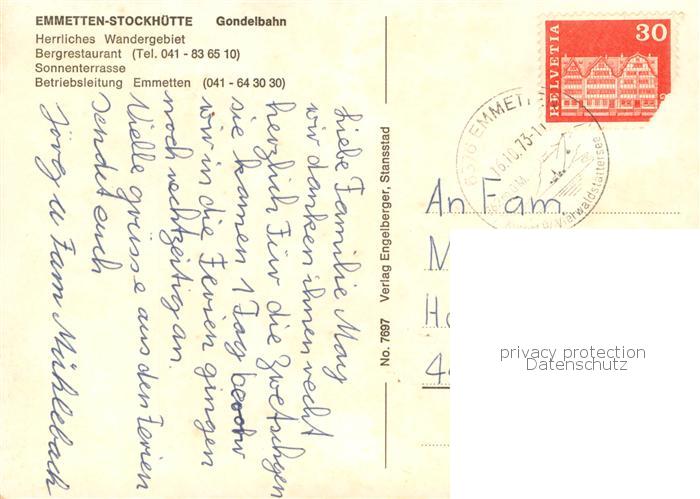 EMMETTEN-STOCKHÜTTE Gondelbahn
Herrliches Wandergebiet
Bergrestaurant (Tel. 041 - 83 65 10)
Sonnenterrasse
Betriebsleitung Emmetten (041 - 64 30 30)
Liebe Familie May
wir danken ihnen recht
herzlich Für die Zwetschgen
sie kamen 1 Tag bevor
wir in die Ferien gingen
noch rechtzeitig an.
Vielle grüsse aus den Ferien
sendet euch
Jörg u Fam Mühlebach
No. 7697 Verlag Engelberger, Stansstad
HELVETIA 30
6376 EMMETTEN
16.10.73-11
Vierwaldstättersee
An Fam
M
Ha
4
privacy protection
Datenschutz